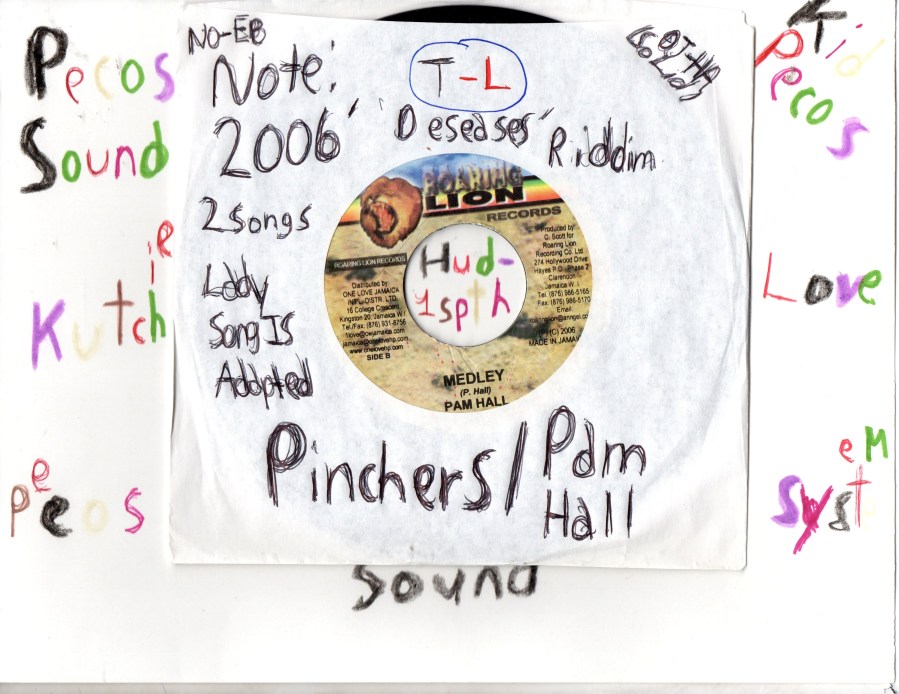 Pecos
Sound
Kutchie
Peeos
NO-EB
Note:
2006'
T-L
Deseases'
Riddim
2 songs
Lady
Song Is
Adopted
ROARING
LION
RECORDS
ROARING LION RECORDS
Distributed by:
ONE LOVE JAMAICA
INT'L DISTR. LTD.
16 College Crescent
Kingston 20, Jamaica W.I
Tel/Fax: (876) 931-8756
1love@cwjamaica.com
jamaica@onelovehp.com
www.onelovehp.com
SIDE B
Hud-
1spth
Produced by:
C. Scott for
Roaring Lion
Recording Co. Ltd
274 Hollywood Drive
Hayes P.O. Phase 2
Clarendon
Jamaica W. I.
Tel: (876) 986-5165
Fax: (876) 986-5170
Email:
(P)(C) 2006
MADE IN JAMAICA
MEDLEY
(P. Hall)
PAM HALL
Pinchers / Pam
Hall
Kid
Pecos
Love
System
Sound